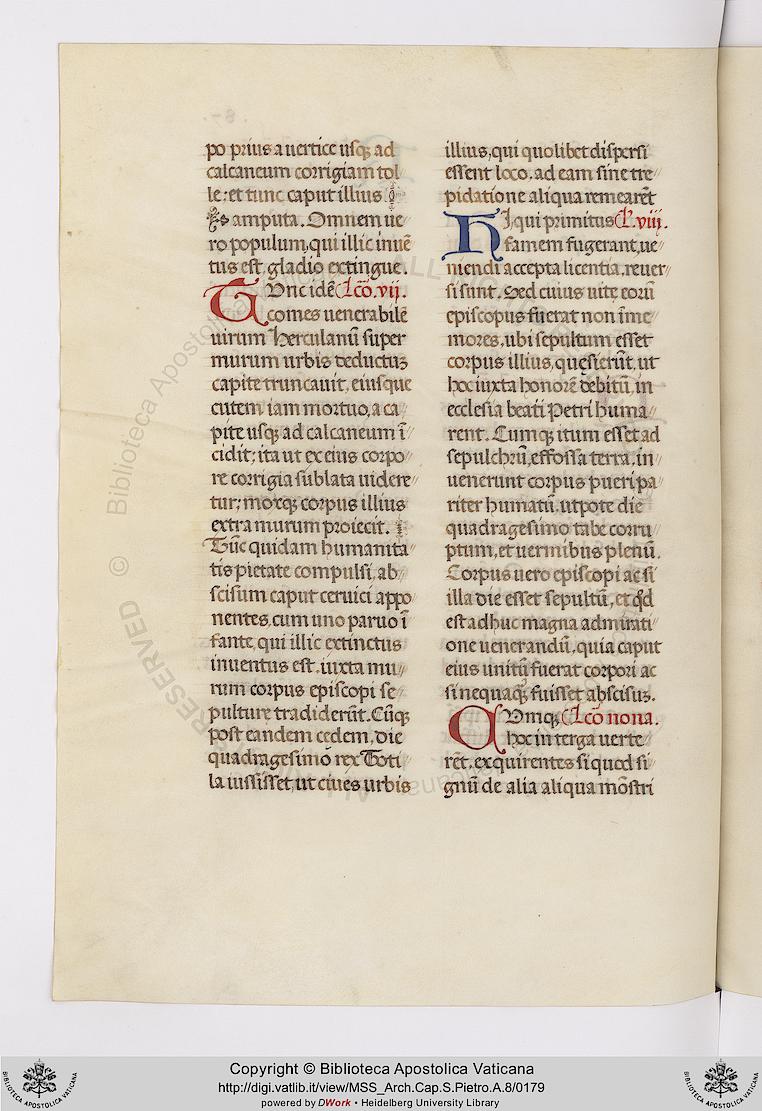 po prius a uertice usq; ad
calcaneum corrigiam tol
le: et tunc caput illius
amputa. Omnem ue
ro populum, qui illic inuē
tus est gladio extingue.
TUnc idē Lc̄o. vii.
comes uenerabilē
uirum herculanū super
murum urbis deductuʒ
capite truncauit, eiusque
cutem iam mortuo, a ca
pite usq; ad calcaneum ī
cidit; ita ut ex eius corpo
re corrigia sublata uidere
tur; moxq; corpus illius
extra murum proiecit.
Tūc quidam humanita
tis pietate compulsi, ab
scisum caput ceruici appo
nentes, cum uno paruo ī
fante, qui illic extinctus
inuentus est, iuxta mu
rum corpus episcopi se
pulturę tradiderūt. Cūq;
post eandem cedem, die
quadragesimo rex Toti
la iussisset, ut ciues urbis
illius, qui quolibet dispersi
essent loco, ad eam sine tre
pidatione aliqua remearēt
HI qui primitus L. viii.
famem fugerant, ue
niendi accepta licentia, reuer
si sunt. Sed cuius uitę eorū
episcopus fuerat non īme
mores, ubi sepultum esset
corpus illius, quęsierūt, ut
hoc iuxta honorē debitū, in
ecclesia beati Petri huma
rent. Cumq; itum esset ad
sepulchrū, effossa terra, in
uenerunt corpus pueri pa
riter humatū, utpote die
quadragesimo tabe corru
ptum, et uermibus plenū.
Corpus uero episcopi ac si
illa die esset sepultū, et qd̄
est adhuc magna admirati
one uenerandū, quia caput
eius unitū fuerat corpori ac
si nequaq̄ fuisset abscisuʒ.
CUmq; Lc̄o nona.
hoc in terga uerte
rēt, exquirentes si quod si
gnū de alia aliqua mōstri
© Biblioteca Apostolica
RESERVED
Copyright © Biblioteca Apostolica Vaticana
http://digi.vatlib.it/view/MSS_Arch.Cap.S.Pietro.A.8/0179
powered by DWork • Heidelberg University Library
BIBLIOTECA APOSTOLICA VATICANA
BIBLIOTECA APOSTOLICA VATICANA